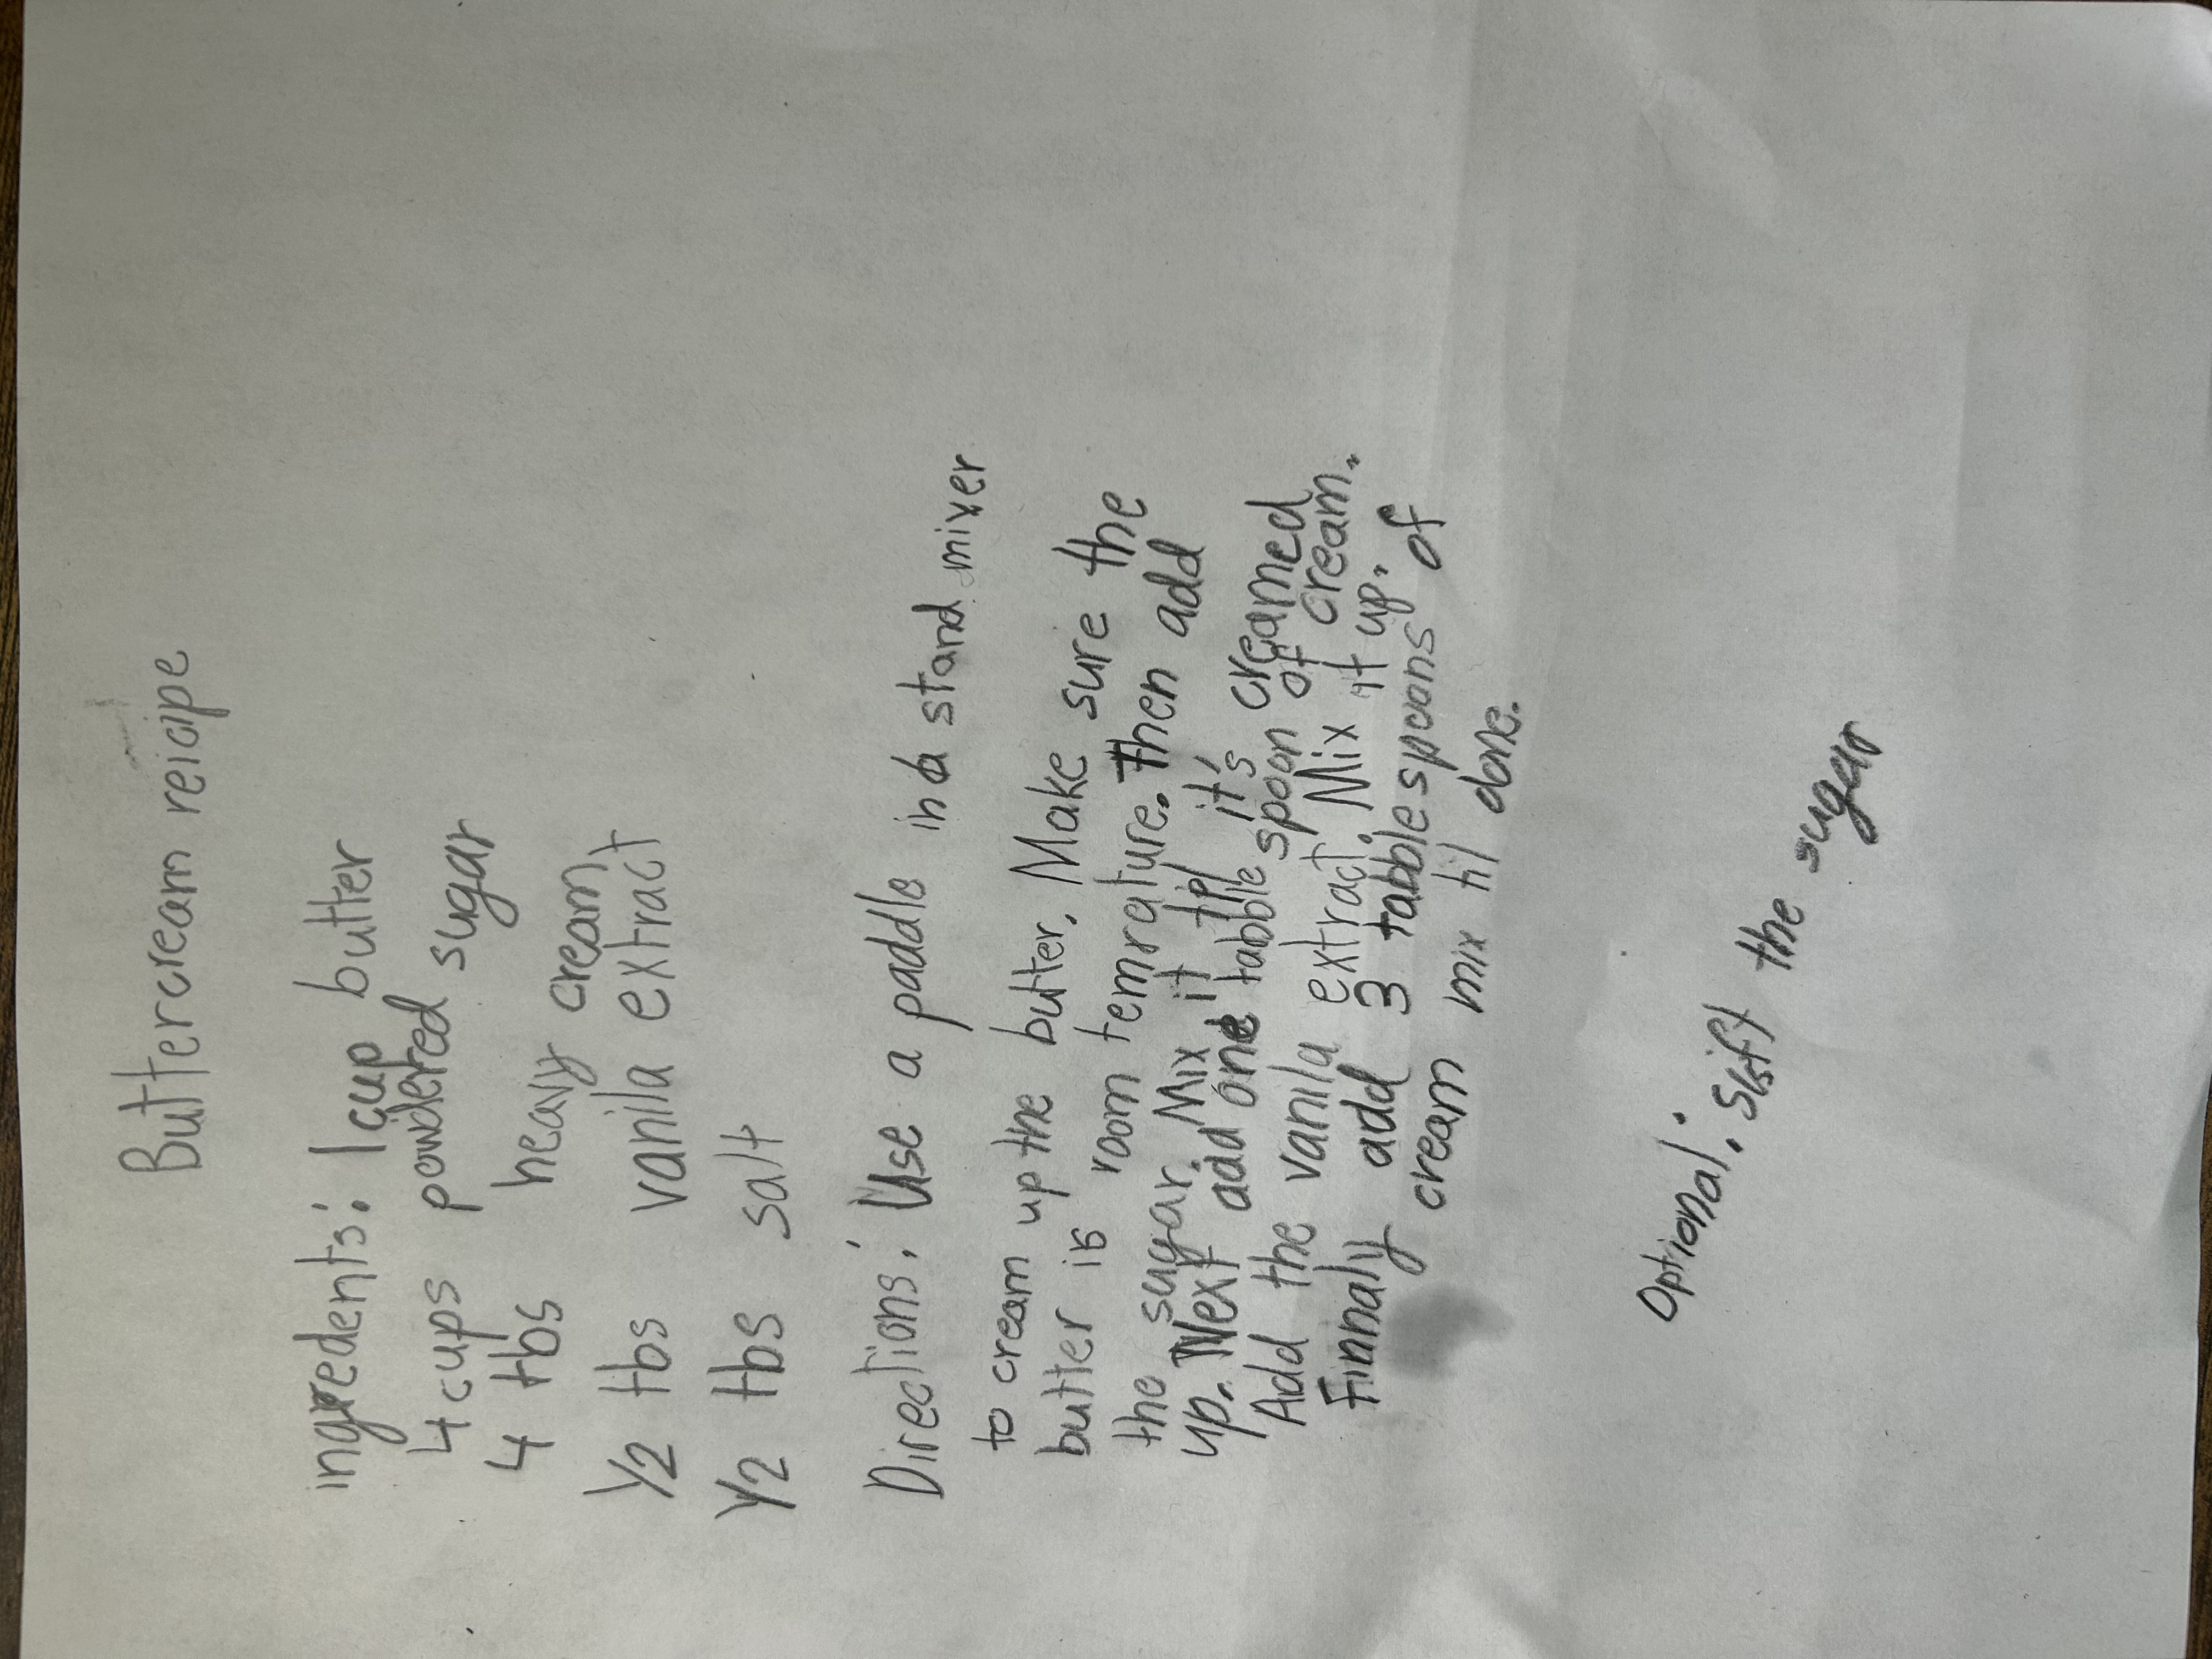 Buttercream reicipe
ingredents: 1 cup butter
4 cups powdered sugar
4 tbs heavy cream
1/2 tbs vanila extract
1/2 tbs salt
Directions: Use a paddle in a stand mixer
to cream up the butter. Make sure the
butter is room temrature. Then add
the sugar. Mix it it's creamed
up. Next add one tabble spoon of cream.
Add the vanila extract. Mix it up.
Finnaly add 3 tabble spoons of
cream mix til done.
Optional: Sift the sugar